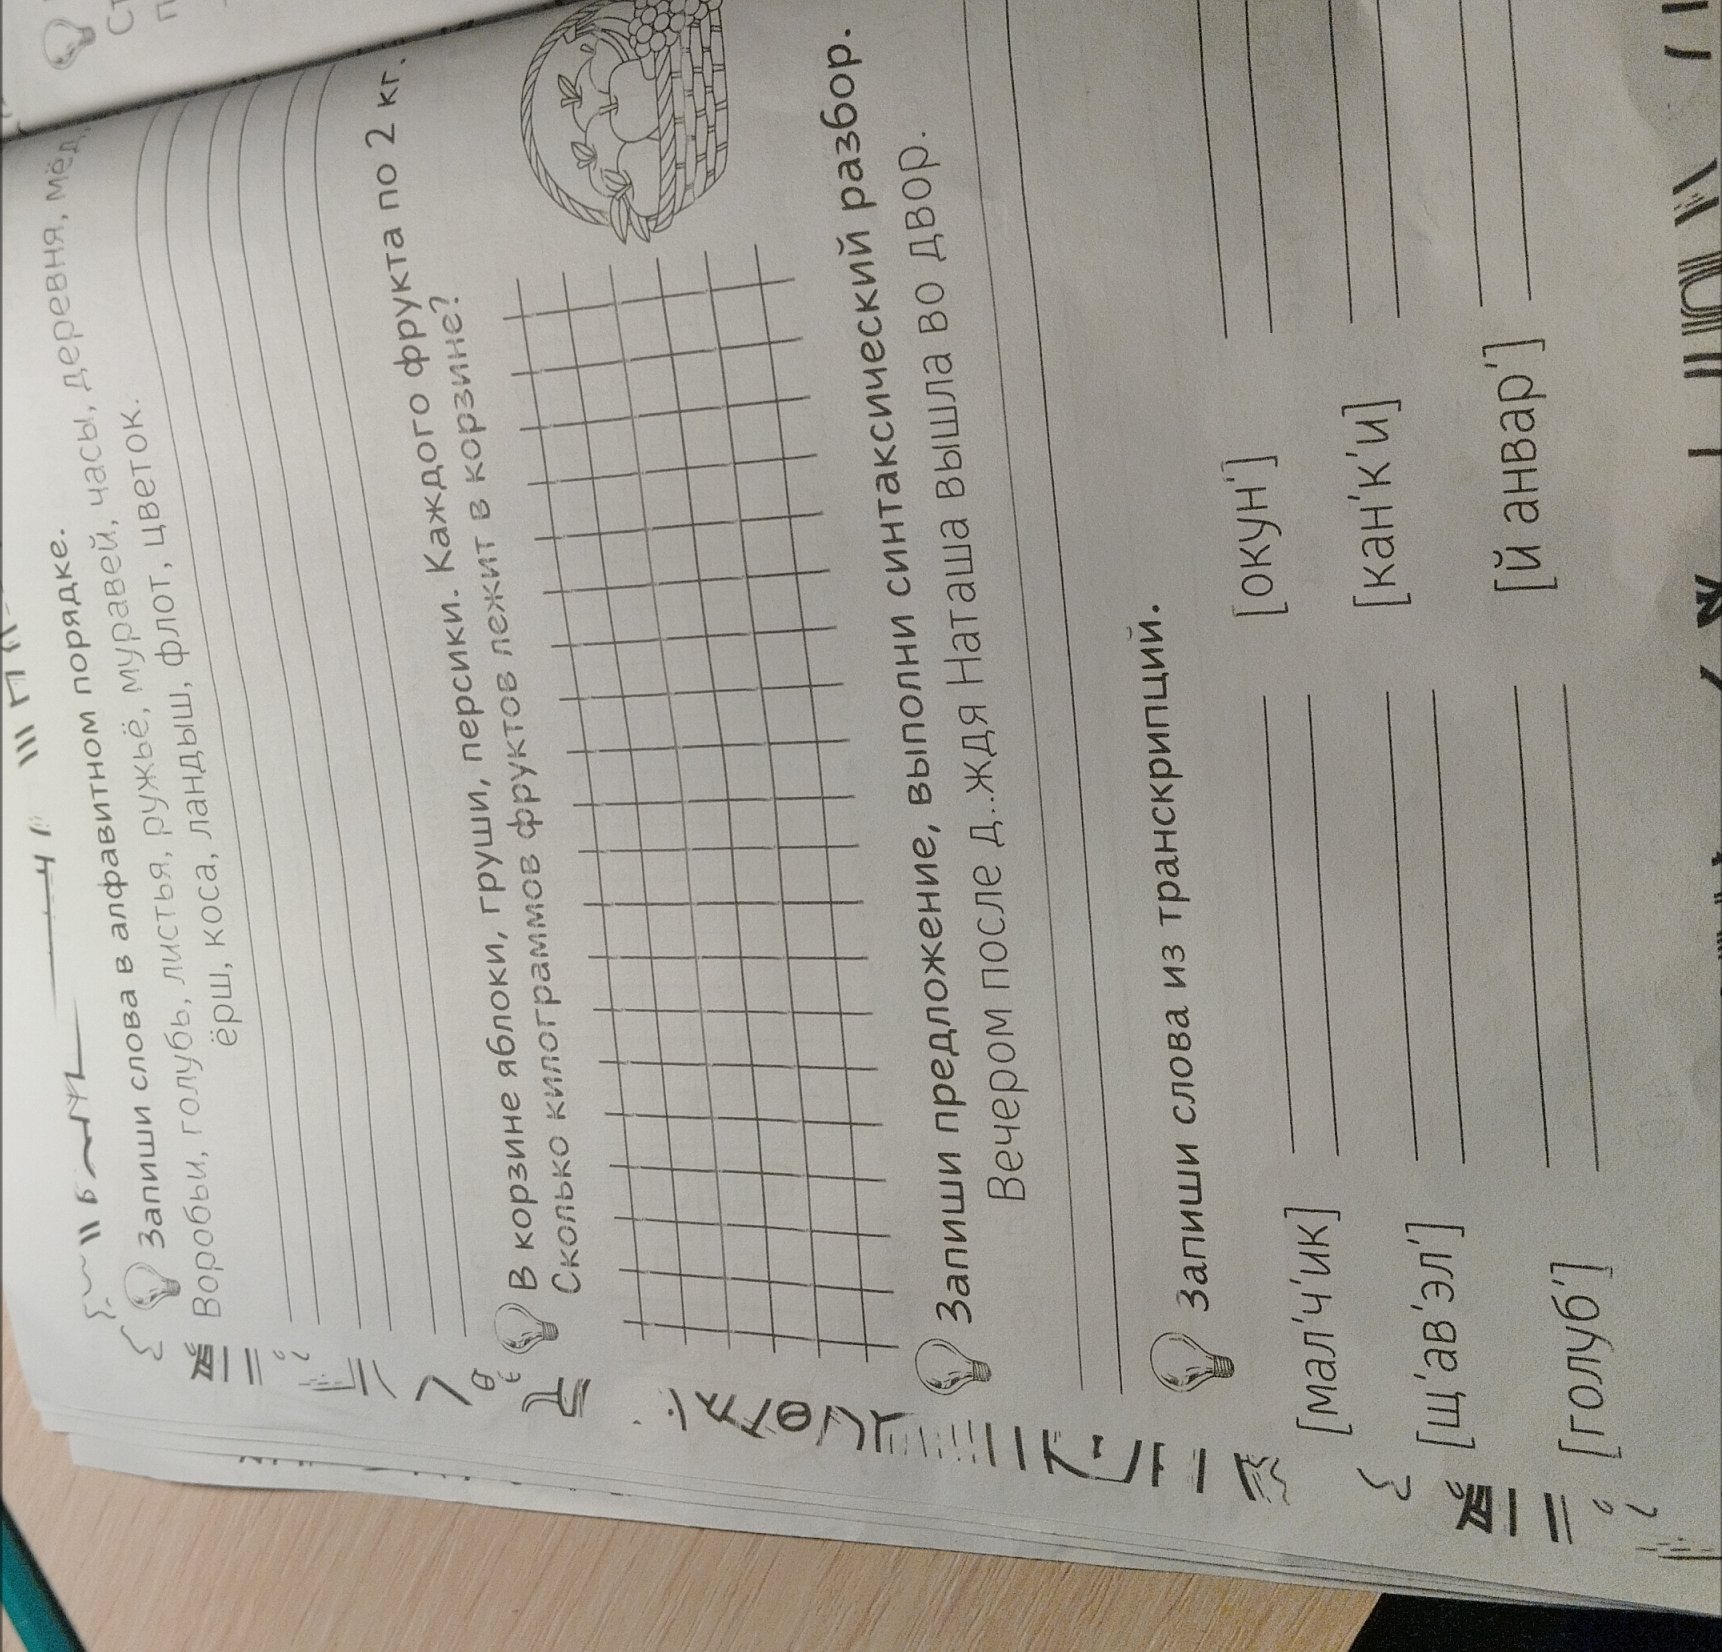 Запиши слова в алфавитном порядке.
Воробьи, голубь, листья, ружьё, муравей, часы, деревня, мёд,
ёрш, коса, ландыш, флот, цветок.
В корзине яблоки, груши, персики. Каждого фрукта по 2 кг.
Сколько килограммов фруктов лежит в корзине?
Запиши предложение, выполни синтаксический разбор.
Вечером после д..ждя Наташа вышла во двор.
Запиши слова из транскрипций.
[мал'ч'ик] [окун']
[щ'ав'эл'] [кан'к'и]
[голуб'] [й анвар']